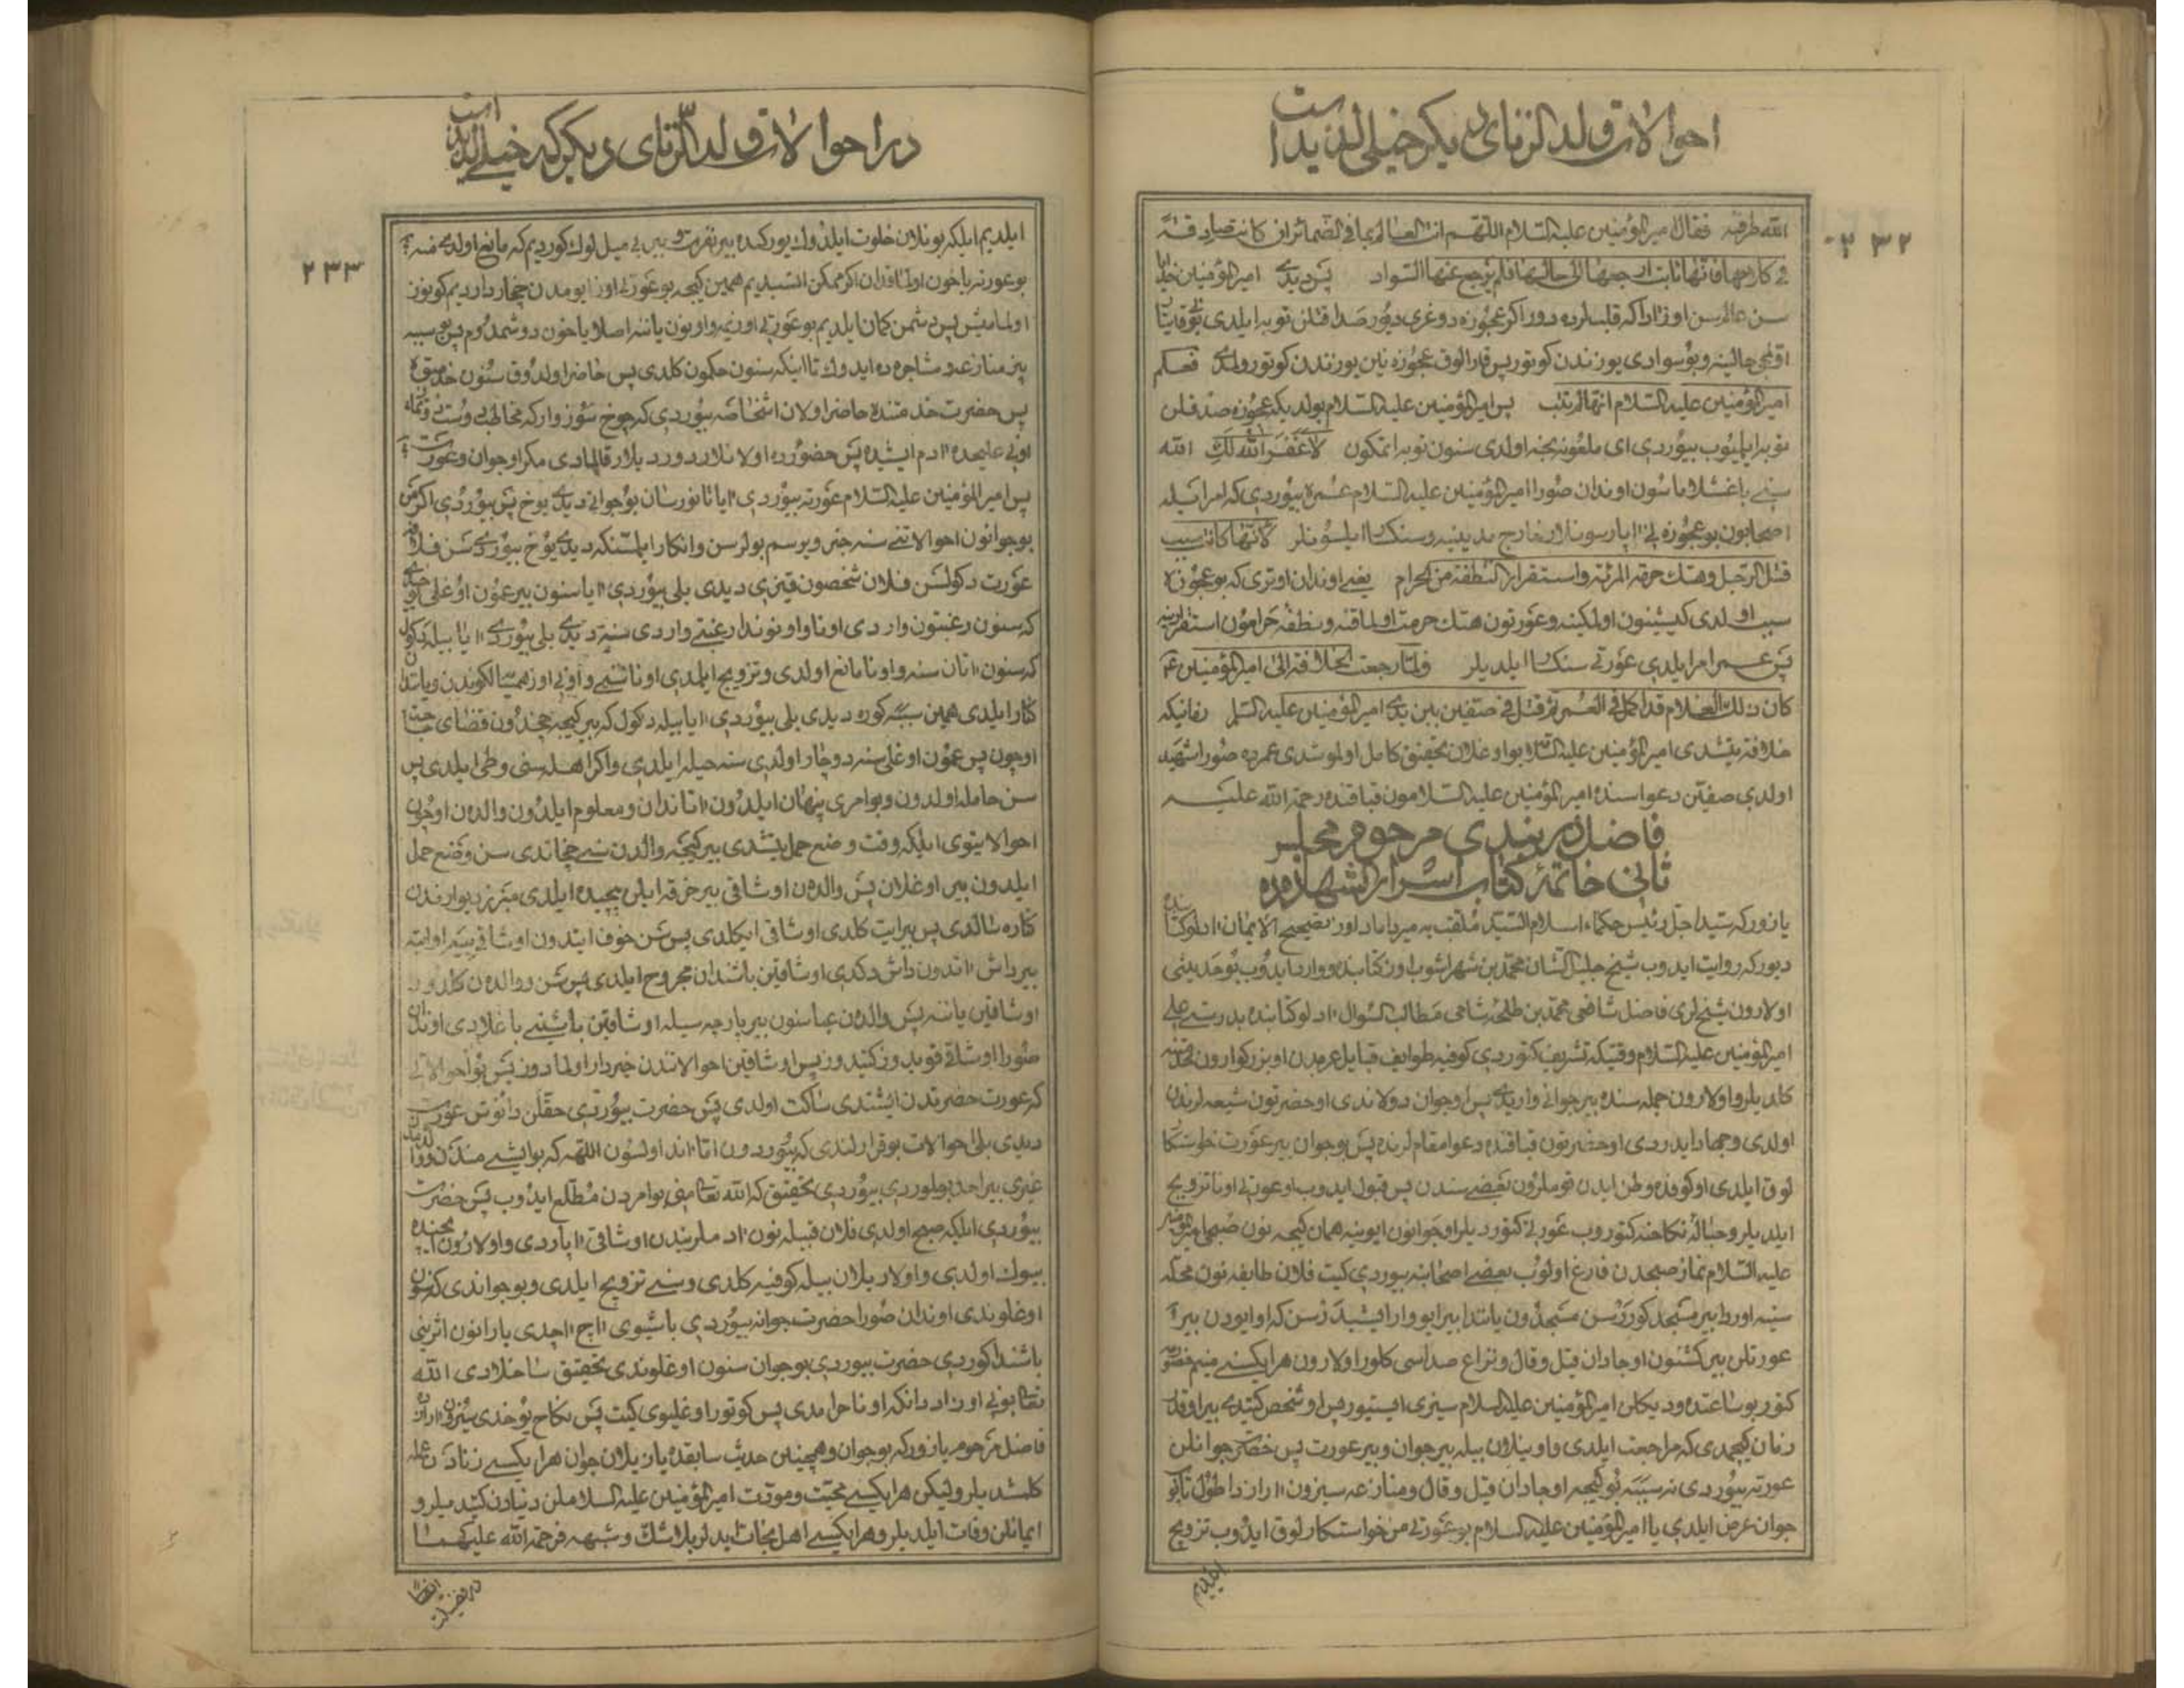 احوالات ولد الزنای دیکر خیلی لذیذ است
۲۳۲
الله طرفینه فقال امیرالمؤمنین علیه السلام اللهم انت العالم بما فی الضمائر ان کانت صادقة
سن عالم سن اوزاراکه قلبلرده دور اکر عجوزه دوغری دیور صداقتلن توبه ایلدی
اولکی حالینه وبو سوادی یوزندن کوتور پس قارالوق عجوزه نین یوزندن کوتورولمدی فعلم
امیرالمؤمنین علیه السلام انها لم تتب پس امیرالمؤمنین علیه السلام بولدیکه عجوزه صدقلن
توبه ایلمیوب بیوردی ای ملعونه نجه اولدی سنون توبه اتمکون لا غفر الله لک الله
سنی باغشلاماسون اوندان صورا امیرالمؤمنین علیه السلام عمره بیوردی که امر ایله
اصحابون بو عجوزه نی اپارسونلار خارج مدینیه و سنکسار ایلسونلر لانها کانت سبب
قتل الرجل وهتک حرمة المرئة واستقرار النطفة من الحرام یعنی اوندان اوتری که بو عجوزه
سبب اولدی کیشینون اولمکینه وعورتون هتک حرمت اولماقنه ونطفه حرامون استقرارینه
پس عمر امر ایلدی عورتی سنکسار ایلدیلر ولما رجعت الخلافة الی امیرالمؤمنین
کان ذلک الغلام قد اکمل فی العمر ثم قتل فی صفین بین یدی امیرالمؤمنین علیه السلم زمانیکه
خلافة یتشدی امیرالمؤمنین علیه السلا بو اوغلان تحقیق کامل اولموشدی عمرده صورا شهید
اولدی صفین دعواسنده امیرالمؤمنین علیه السلامون قباقنده رحمة الله علیه
فاضل دربندی مرحوم مجلس
ثانی خاتمه کتاب اسرار الشهاده ده
یازور که سید اجل رئیس حکماء اسلام السید ملقب به میرداماد اوز تصحیح الایمان ادلو کتابنده
دیور که روایت ایدوب شیخ جلیل الشان محمد بن شهراشوب اوز کتابنده و وارد ایدوب بو حدیثی
اولارون شیخلری فاضل شافعی محمد بن طلحه شامی مطالب السؤال ادلو کتابنده بدرستی
امیرالمؤمنین علیه السلام وقتیکه تشریف کتوردی کوفیه طوایف قبایل عربدن او بزرکوارون
کلدیلر و اولارون جمله سنده بیر جوانی واریدی پس او جوان دولاندی او حضرتون شیعه لرندن
اولدی وجهاد ایدردی او حضرتون قباقنده دعوا مقاملرنده پس بو جوان بیر عورت خواستکار
لوق ایلدی او کوفه ده وطن ایدن قوملرون بعضی سندن پس قبول ایدوب او عورتی اونا تزویج
علیه السلام نماز صبحدن فارغ اولوب بعضی اصحابنه بیوردی کیت فلان طایفه نون محله
سینه اوردا بیر مسجد کوررسن مسجدون یانندا بیر ایو وار ایشیدرسن که او ایودن بیر
عورتلن بیر کشنون اوجادان قیل وقال ونزاع صداسی کلور اولارون هر ایکسنی منیم
کتور بو ساعتده
زمان کیچمدی که مراجعت ایلدی و اونیلان بیله بیر جوان وبیر عورت پس حضرت جوانلن
عورته بیوردی نه سببه بو کیجه اوجادان قیل وقال ومنازعه سیزون ارازدا طول تاپدی
جوان عرض ایلدی یا امیرالمؤمنین علیه السلام بو عورتی من خواستکارلوق ایدوب تزویج
ایلدیم
در احوالات ولد الزنای دیکر که خیلی لذیذ است
۲۳۳
ایلدیم ایلکه بونلان خلوت ایلدوک یورکمده بیر نفرت و بیر بی میل لوک کوردیم که مانع اولدی منه
بو عورته یاخون اولماقدان اکر ممکن السیدیم همین کیجه بو عورتی اوز ایومدن چخارداردیم کونوز
اولمامیش پس دشمن کمان ایلدیم بو عورتی اوزیمه و اونون یاننه اصلا یاخون دوشمدوم پس بو سببه
بیز منازعه و مشاجره ده ایدوک تا اینکه سنون حکمون کلدی پس حاضر اولدوق سنون خدمتوه
پس حضرت خدمتنده حاضر اولان اشخاصه بیوردی که چوخ سوز وار که مخاطبی
اونی علیحده ادم ایشیده پس حضورده اولانلار دوردیلار قالمادی مکر او جوان و عورت
پس امیرالمؤمنین علیه السلام عورته بیوردی ایا تانورسان بو جوانی دیدی یوخ پس بیوردی اکر من
بو جوانون احوالاتنی سنه خبر ویرسم بولرسن و انکار ایلمسنکه دیدی یوخ بیوردی سن فلان
عورت دکولسن فلان شخصون قیزی دیدی بلی بیوردی ایا سنون بیر عمون اوغلی
که سنون رغبتون واردی اونا و اونوندا رغبتی واردی سنه دیدی بلی بیوردی ایا بیله دکول
که سنون اتان سنه و اونا مانع اولدی و تزویج ایلمدی اونا سنی و اونی اوز همسایالکوندن و یانندان
کنار ایلدی همین سببه کوره دیدی بلی بیوردی ایا بیله دکول که بیر کیجه چخدون قضای حاجت
اوچون پس عمون اوغلی سنه دوچار اولدی سنه حیله ایلدی و اکراهله سنی وطی ایلدی پس
سن حامله اولدون و بو امری پنهان ایلدون اتاندان و معلوم ایلدون والدن اوچون
احوالاتیوی ایلکه وقت وضع حمل یتشدی بیر کیجه والدن سنی چخاتدی سن وضع حمل
ایلدون بیر اوغلان پس والدن اوشاقی بیر خرقه ایلن پیچیده ایلدی
کناره سالدی پس بیر ایت کلدی اوشاقی ایکلدی پس سن خوف ایتدون اوشاقی ییه او ایته
بیر داش اتدون داش دکدی اوشاقین باشندان مجروح ایلدی پس سن و والدن کلدوز
اوشاقین یاننه پس والدن عباسنون بیر پارچه سیله اوشاقین باشینی باغلادی اوندان
صورا اوشاقی قویدوز کتیدوز پس اوشاقین احوالاتندن خبردار اولمادوز پس بو احوالاتی
که عورت حضرتدن ایشتدی ساکت اولدی پس حضرت بیوردی حقلن دانوش عورت
دیدی بلی احوالات بو قراراندی که بیوردون اتا انداولسون اللهه که بو ایشی مندن و والدمدن
غیری بیر احد بولموردی بیوردی تحقیق که الله تعالی منی بو امردن مطلع ایدوب پس حضرت
بیوردی ایلکه صبح اولدی فلان قبیله نون ادملریندن اوشاقی اپاردی و اولارون ایچنده
بیوک اولدی و اولاریلان بیله کوفیه کلدی و سنی تزویج ایلدی و بو جواندی که سنون
اوغلوندی اوندان صورا حضرت جوانه بیوردی باشیوی اچ اچدی یارانون اثرینی
باشندا کوردی حضرت بیوردی بو جوان سنون اوغلوندی تحقیق ساخلادی الله
تعالی بونی اوزادانکه اونا حرامدی پس کوتور اوغلیوی کیت پس نکاح یوخدی سیزون ارازدا
فاضل مرحوم یازور که بو جوان و همچنین حدیث سابقده یازیلان جوان هر ایکیسی زنادن عمله
کلمشدیلر ولیکن هر ایکیسی محبت و مودت امیرالمؤمنین علیه السلاملن دنیادن کتدیلر و
ایمانلن وفات ایلدیلر و هر ایکیسی اهل نجاتدیدلر بلاشک و شبهه فرحمة الله علیهما